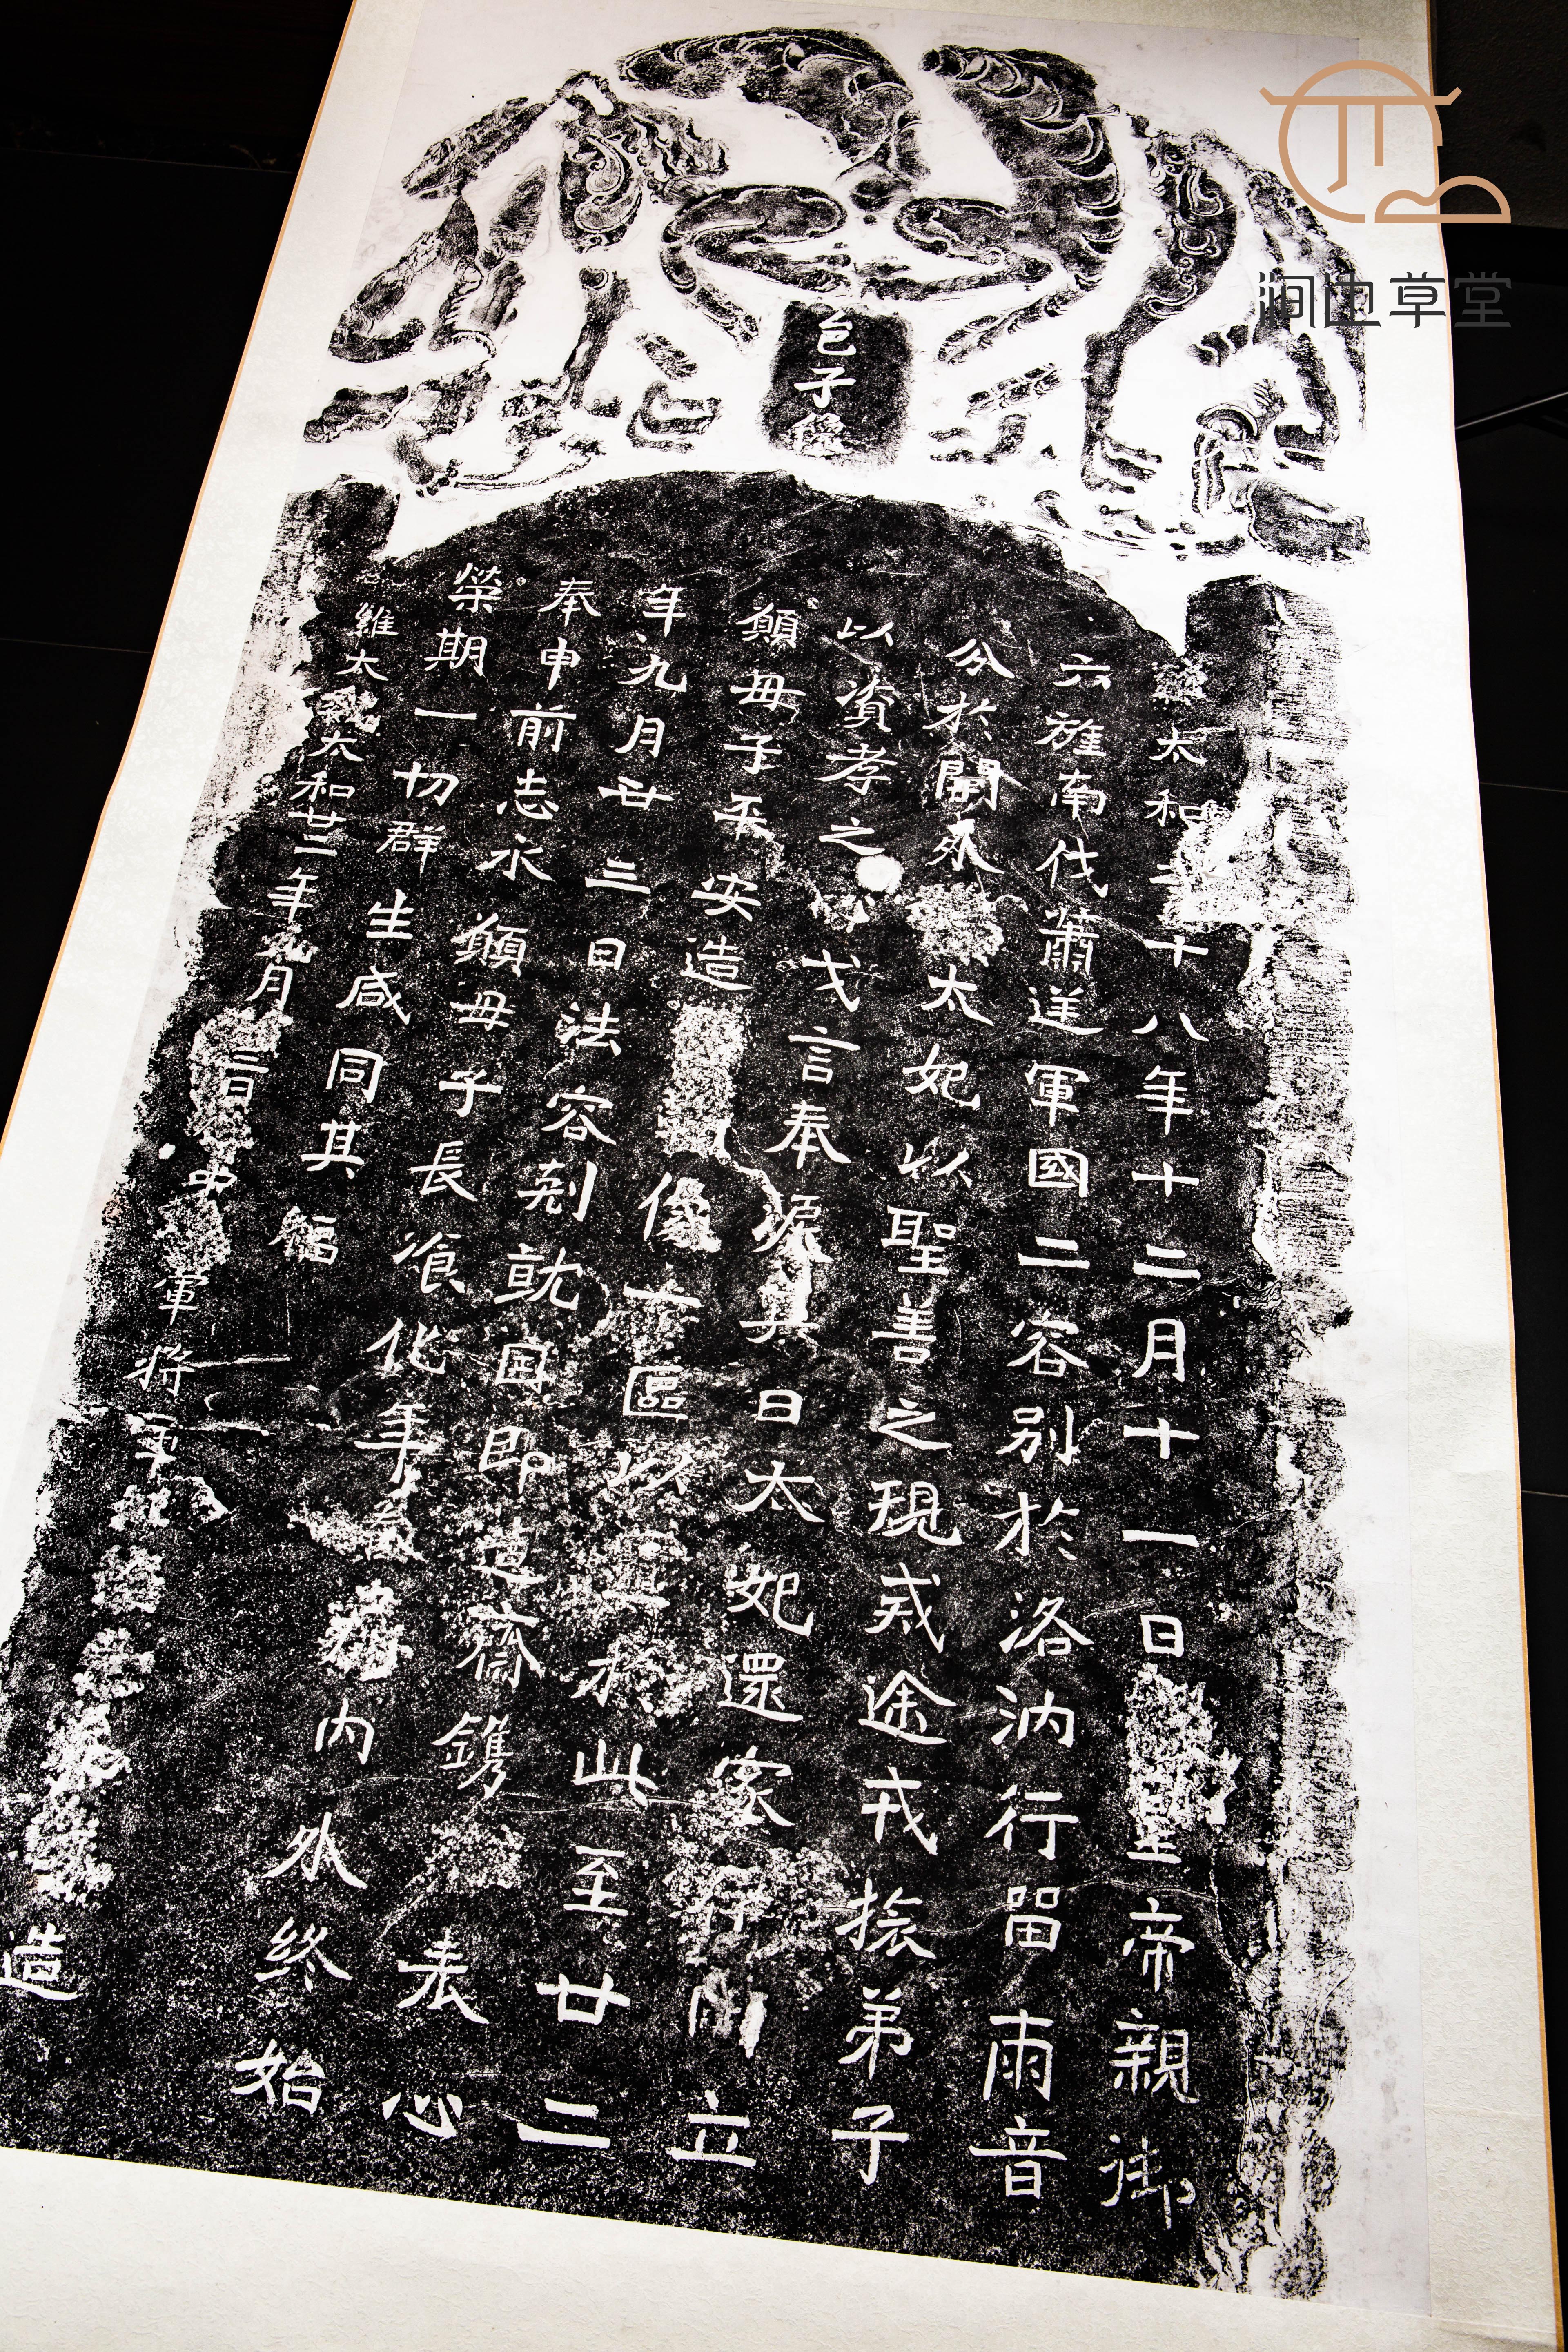 邑子像
維太和之十八年十二月十一日皇帝親御
六旌南伐蕭逆軍國二容別於洛汭行留兩音
分於闕外太妃以聖善之規戒途戎旅弟子
以資孝之心戈言奉淚其日太妃還家伊川立
願母子平安造像一區以置於此至廿二
年九月廿三日法容剋就因即造齋鐫表心
奉申前志永願母子長飡化年眷屬內外終始
榮期一切群生咸同其福
維大魏太和廿二年九月日中軍將軍造
涧边草堂